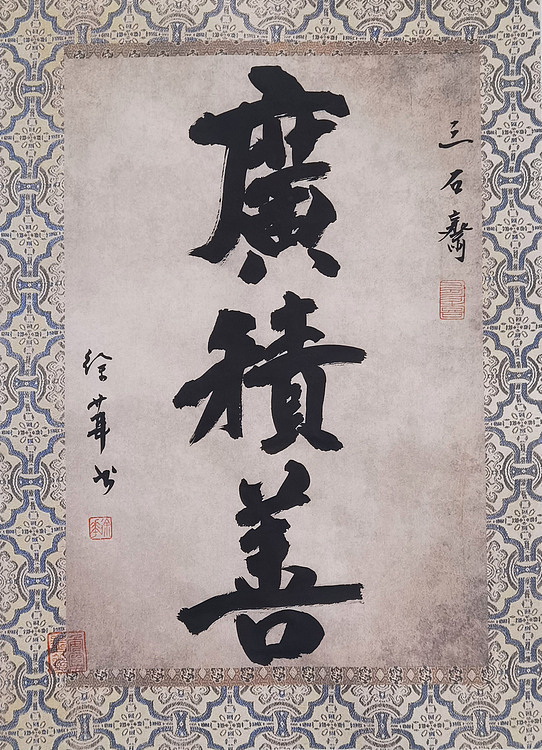 三石齋
廣積善
徐華书